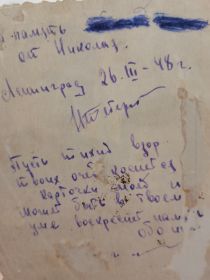 память
от Николая.
Ленинград 26.III-48 г.
Пусть тихий взор
твоих очей коснётся
карточки моей и
может быть в твоём
уме воскресит